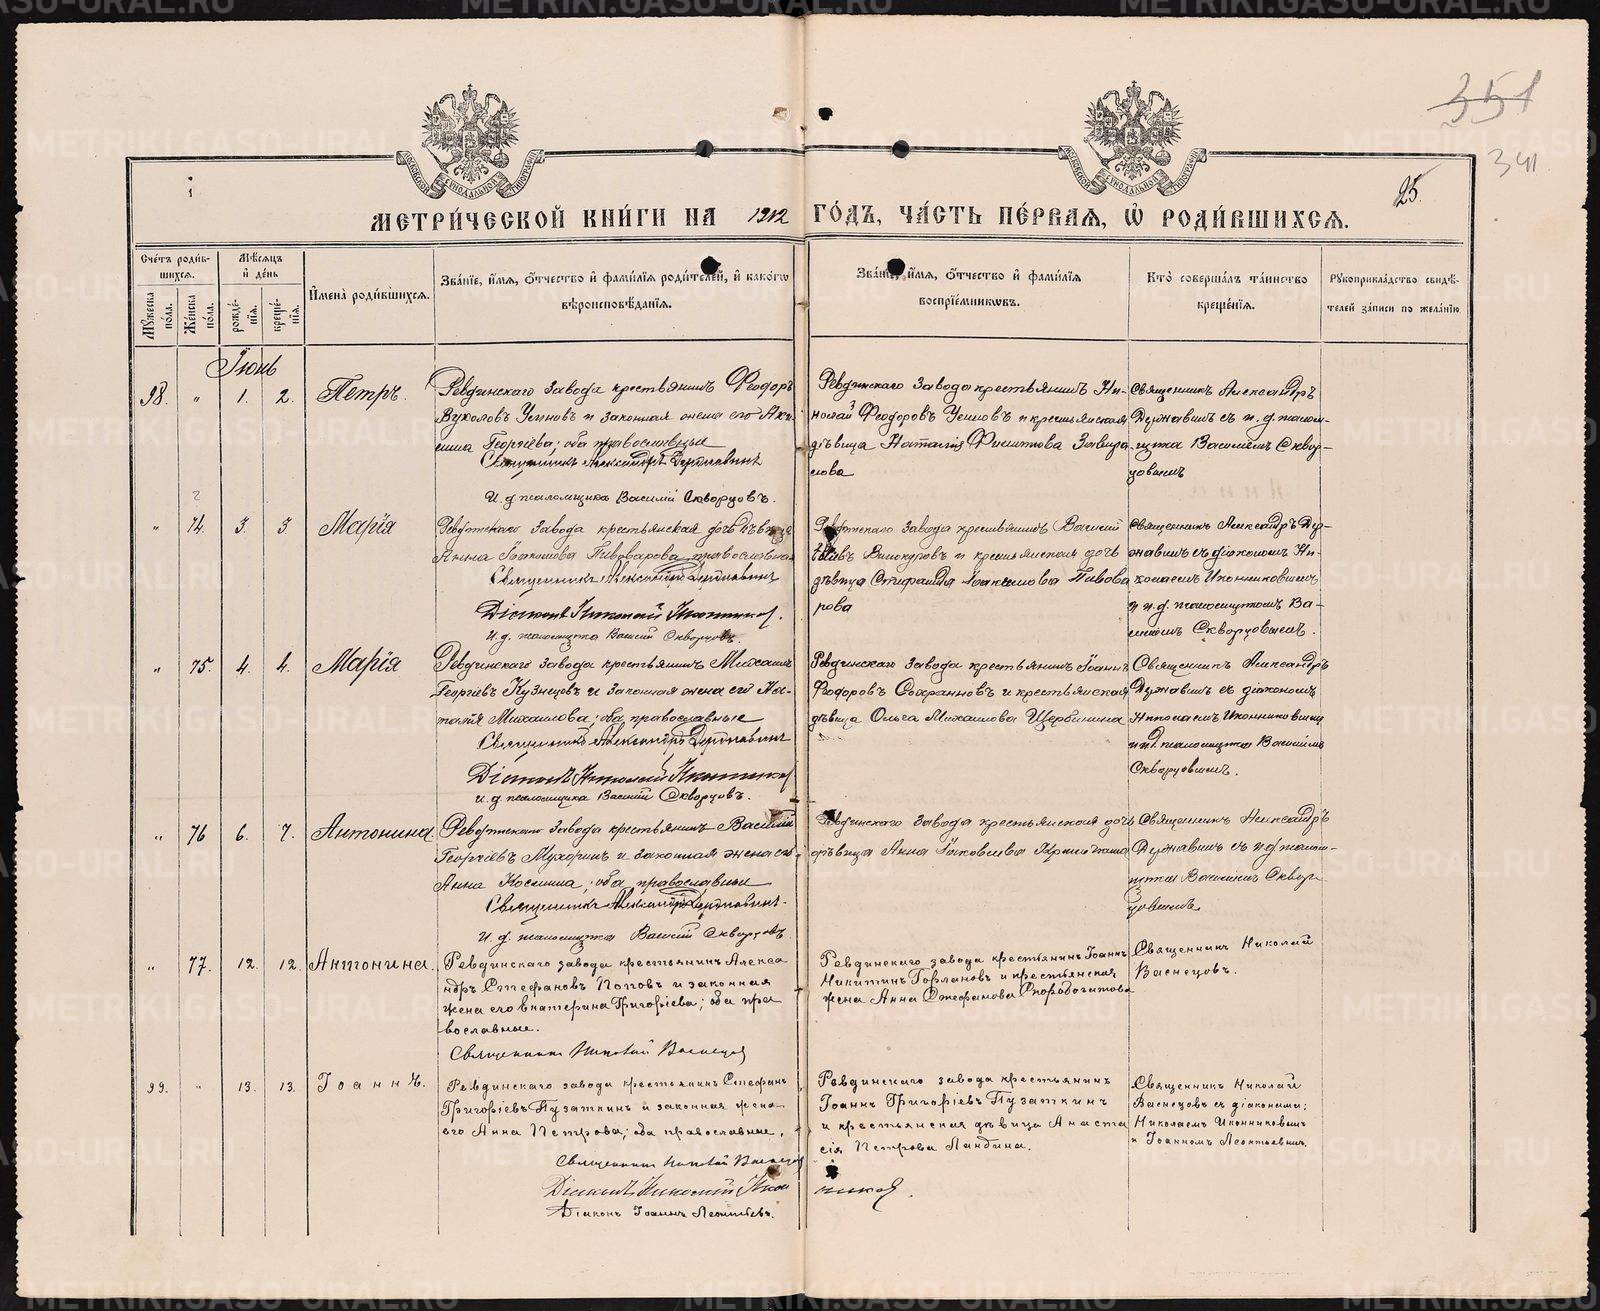 351
341
25.
МЕТРИ́ЧЕСКОЙ КНИ́ГИ НА 1912 ГО́ДЪ, ЧА́СТЬ ПЕ́РВАѦ, Ѡ҆ РОДИ́ВШИХСѦ.
Сче́тъ роди́в-
шихся.
Мѣ́сяцъ
и҆ де́нь
Мꙋ́жеска по́ла.
Же́нска по́ла.
рожде́-
нїя.
креще́-
нїя.
И҆мена̀ роди́вшихся.
Зва́нїе, и҆́мя, ѻ҆́тчество и҆ фами́лїя роди́телей, и҆ како́гѡ
вѣроисповѣ́данїя.
Зва́нїе, и҆́мя, ѻ҆́тчество и҆ фами́лїя
воспрїе́мникѡвъ.
Кто̀ соверша́лъ та́инство
креще́нїя.
Рꙋкоприкла́дство свидѣ́-
телей за́писи по жела́нїю
Іюнь
98. „ 1. 2. Петръ.
Ревдинскаго завода крестьянинъ Ѳеодоръ
Вуколовъ и законная жена его
Георгіева; оба православные
Священникъ Александръ Державинъ
И. д. псаломщика Василій Скворцовъ.
Ревдинскаго завода крестьянинъ Ни-
колай Ѳеодоровъ и крестьянская
дѣвица Наталія
Священникъ Александръ
Державинъ съ и. д. псалом-
щика Василіемъ Сквор-
цовымъ
„ 74. 3. 3. Марія
Ревдинскаго завода крестьянская дочь дѣвица
Анна Пивоварова, православная
Священникъ Александръ Державинъ
Діаконъ Николай Иконниковъ.
И. д. псаломщика Василій Скворцовъ.
Ревдинскаго завода крестьянинъ Василій
Винокуровъ и крестьянская дочь
дѣвица Пивова
рова
Священникъ Александръ Дер-
жавинъ съ діакономъ Ни-
колаемъ Иконниковымъ
и и. д. псаломщикомъ Ва-
силіемъ Скворцовымъ.
„ 75. 4. 4. Марія
Ревдинскаго завода крестьянинъ Михаилъ
Георгіевъ Кузнецовъ и законная жена его На-
талія Михаилова; оба православные
Священникъ Александръ Державинъ
Діаконъ Николай Иконниковъ
И. д. псаломщика Василій Скворцовъ.
Ревдинскаго завода крестьянинъ Іоаннъ
Ѳеодоровъ и крестьянская
дѣвица Ольга Михаилова Щербинина
Священникъ Александръ
Державинъ съ діакономъ
Николаемъ Иконниковымъ
и и.д. псаломщика Василіемъ
Скворцовымъ.
„ 76 6. 7. Антонина
Ревдинскаго завода крестьянинъ Василій
Георгіевъ Мухоринъ и законная жена его
Анна Космина; оба православные
Священникъ Александръ Державинъ.
И. д. псаломщика Василій Скворцовъ.
Ревдинскаго завода крестьянская дочь
дѣвица Анна Іаковлева
Священникъ Александръ
Державинъ съ и д псалом-
щика Василіемъ Сквор-
цовымъ
„ 77. 12. 12. Антонина.
Ревдинскаго завода крестьянинъ Алекса
ндръ Стефановъ Поповъ и законная
жена его Екатерина Григоріева; оба пра
вославные.
Священникъ Николай Васнецовъ
Ревдинскаго завода крестьянинъ Іоаннъ
Никитинъ Горлановъ и крестьянская
жена Анна Стефанова Скоробогатова
Священникъ Николай
Васнецовъ.
99. „ 13. 13. Іоаннъ.
Ревдинскаго завода крестьянинъ Стефанъ
Григоріевъ Пузаткинъ и законная жена
его Анна Петрова; оба православные.
Священникъ Николай Васнецовъ
Діаконъ Николай Иконниковъ.
Діаконъ Іоаннъ Леонтьевъ.
Ревдинскаго завода крестьянинъ
Іоаннъ Григоріевъ Пузаткинъ
и крестьянская дѣвица Анаста
сія Петрова Ландина.
Священникъ Николай
Васнецовъ съ діаконами:
Николаемъ Иконниковымъ
и Іоанномъ Леонтьевымъ.
METRIKI.GASO-URAL.RU